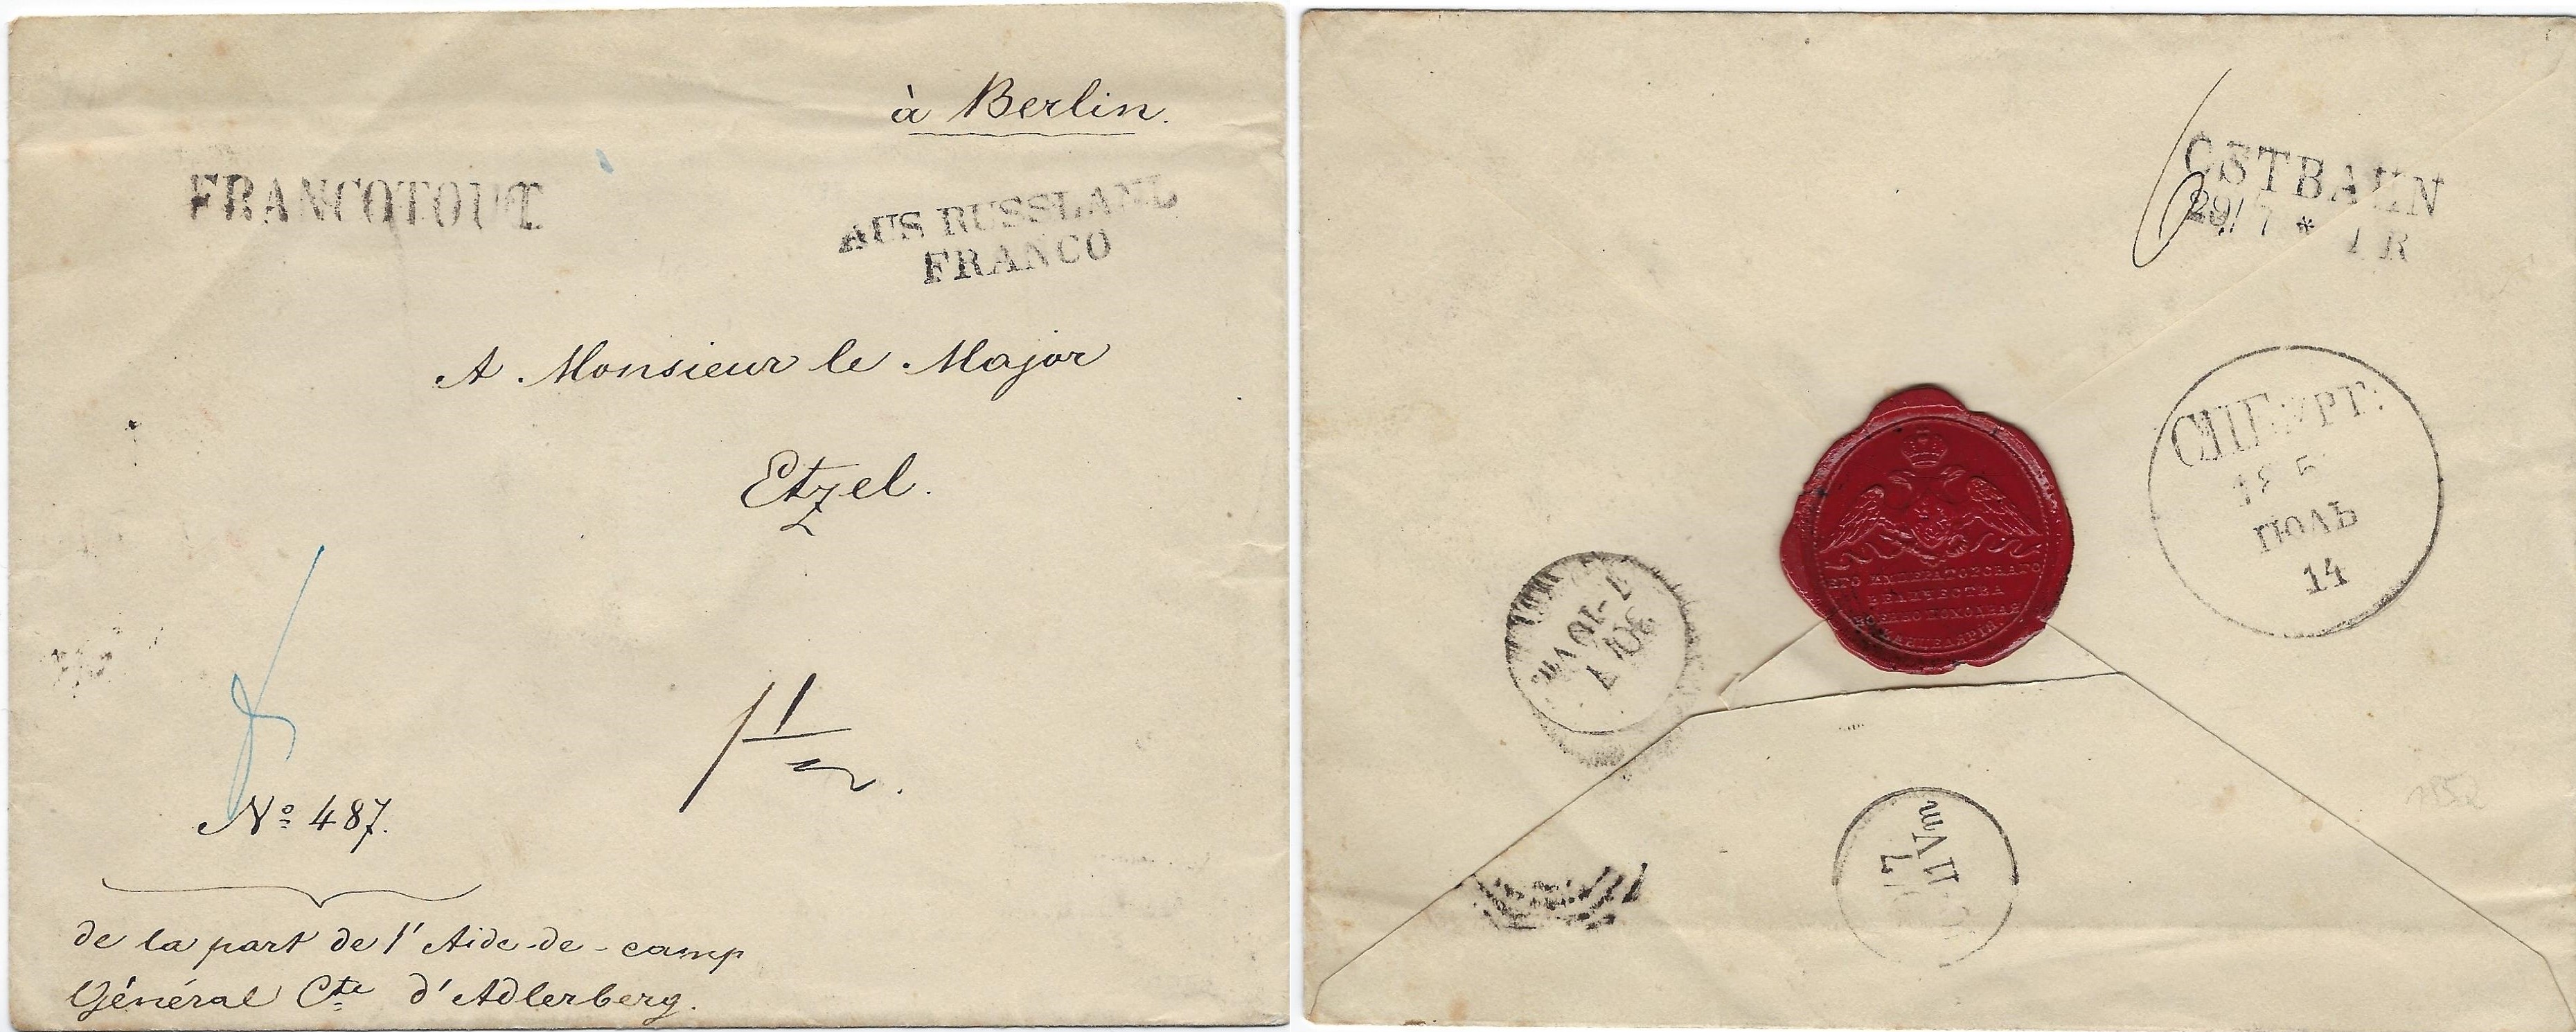 à Berlin.
FRANCOTOUT
AUS RUSSLAND
FRANCO
A Monsieur le Major
Etzel.
1
No 487.
de la part de l'Aide-de-camp
Général Cte d'Adlerberg.
OSTBAHN
29/7 *
ЕГО ИМПЕРАТОРСКАГО
ВЕЛИЧЕСТВА
ВОЕННО ПОХОДНАЯ
КАНЦЕЛЯРІЯ
ІЮЛЬ
14